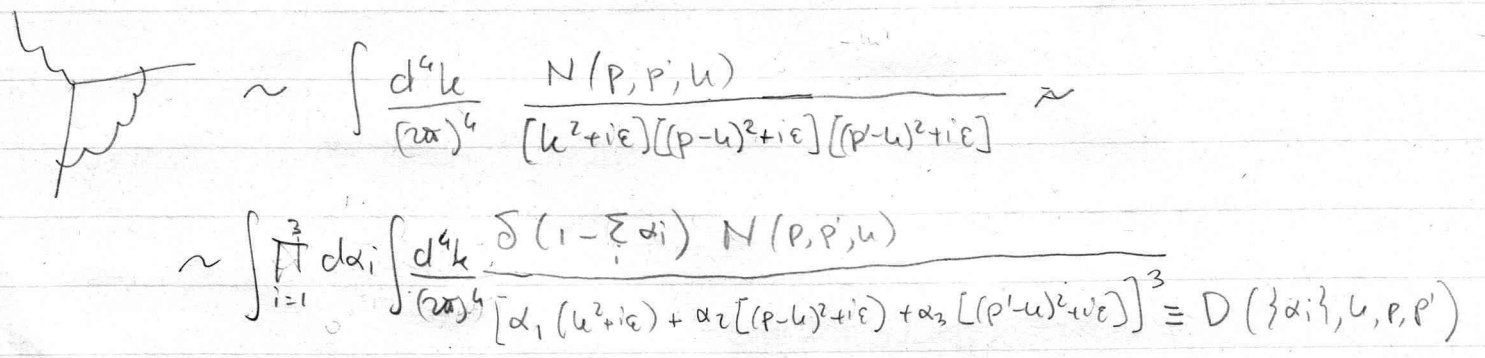 ∼ ∫ d⁴k/(2π)⁴ N(p,p',k)/([k²+iε][(p-k)²+iε][(p'-k)²+iε]) ≈
∼ ∫ ∏_{i=1}^{3} dα_i ∫ d⁴k/(2π)⁴ δ(1-Σ_i α_i) N(p,p',k)/[α₁(k²+iε)+α₂[(p-k)²+iε]+α₃[(p'-k)²+iε]]³ ≡ D({α_i},k,p,p')